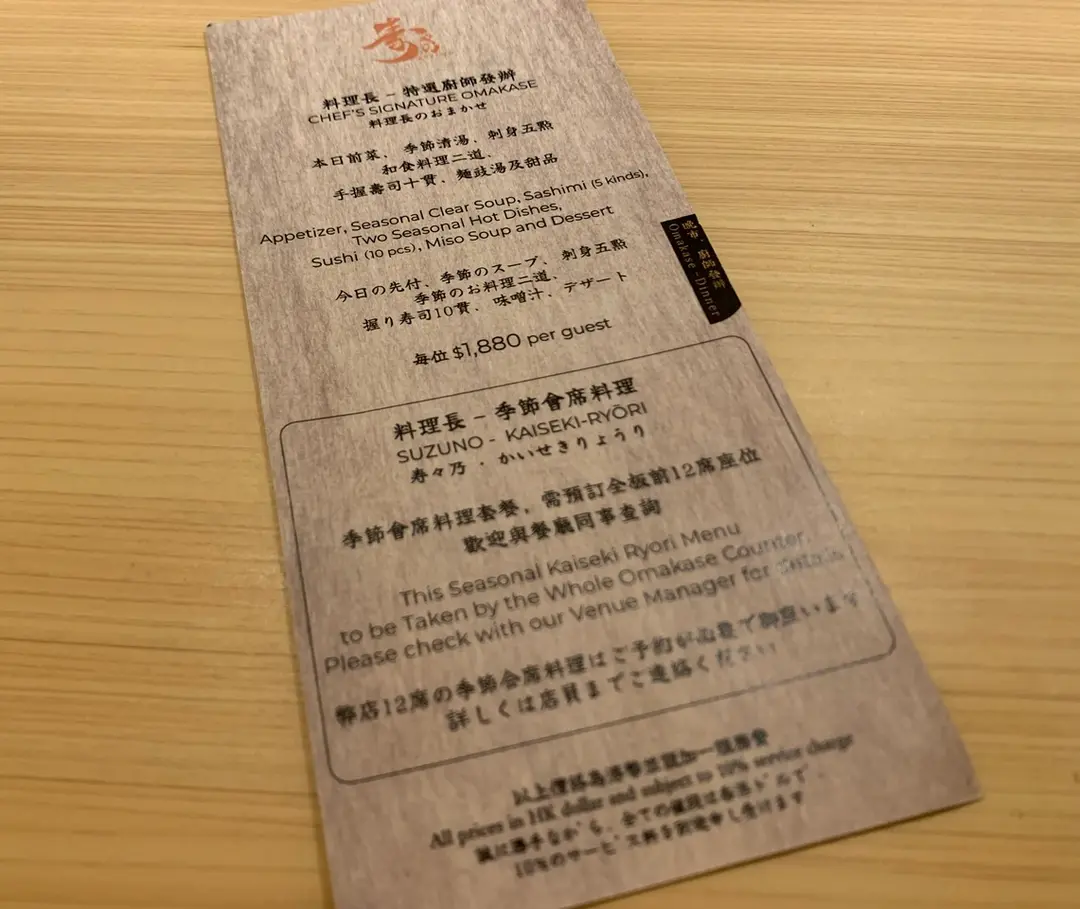 料理長 – 特選廚師發辦
CHEF'S SIGNATURE OMAKASE
料理長のおまかせ
本日前菜、季節清湯、刺身五點
和食料理二道、
手握壽司十貫、麵豉湯及甜品
Appetizer, Seasonal Clear Soup, Sashimi (5 kinds),
Two Seasonal Hot Dishes,
Sushi (10 pcs), Miso Soup and Dessert
今日の先付、季節のスープ、刺身五點
季節のお料理二道、
握り寿司10貫、味噌汁、デザート
每位 $1,880 per guest
廚師發辦
Omakase - Dinner
料理長 – 季節會席料理
SUZUNO - KAISEKI-RYŌRI
寿々乃・かいせきりょうり
季節會席料理套餐，需預訂全板前12席座位
歡迎與餐廳同事查詢
This Seasonal Kaiseki Ryori Menu
to be Taken by the Whole Omakase Counter,
Please check with our Venue Manager for details
弊店12席の季節会席料理はご予約が必要で御座います
詳しくは店員までご連絡ください
以上價格為港幣並設加一服務費
All prices in HK dollar and subject to 10% service charge
誠に勝手ながら、全ての値段は香港ドルで、
10%のサービス料を別途申し受けます